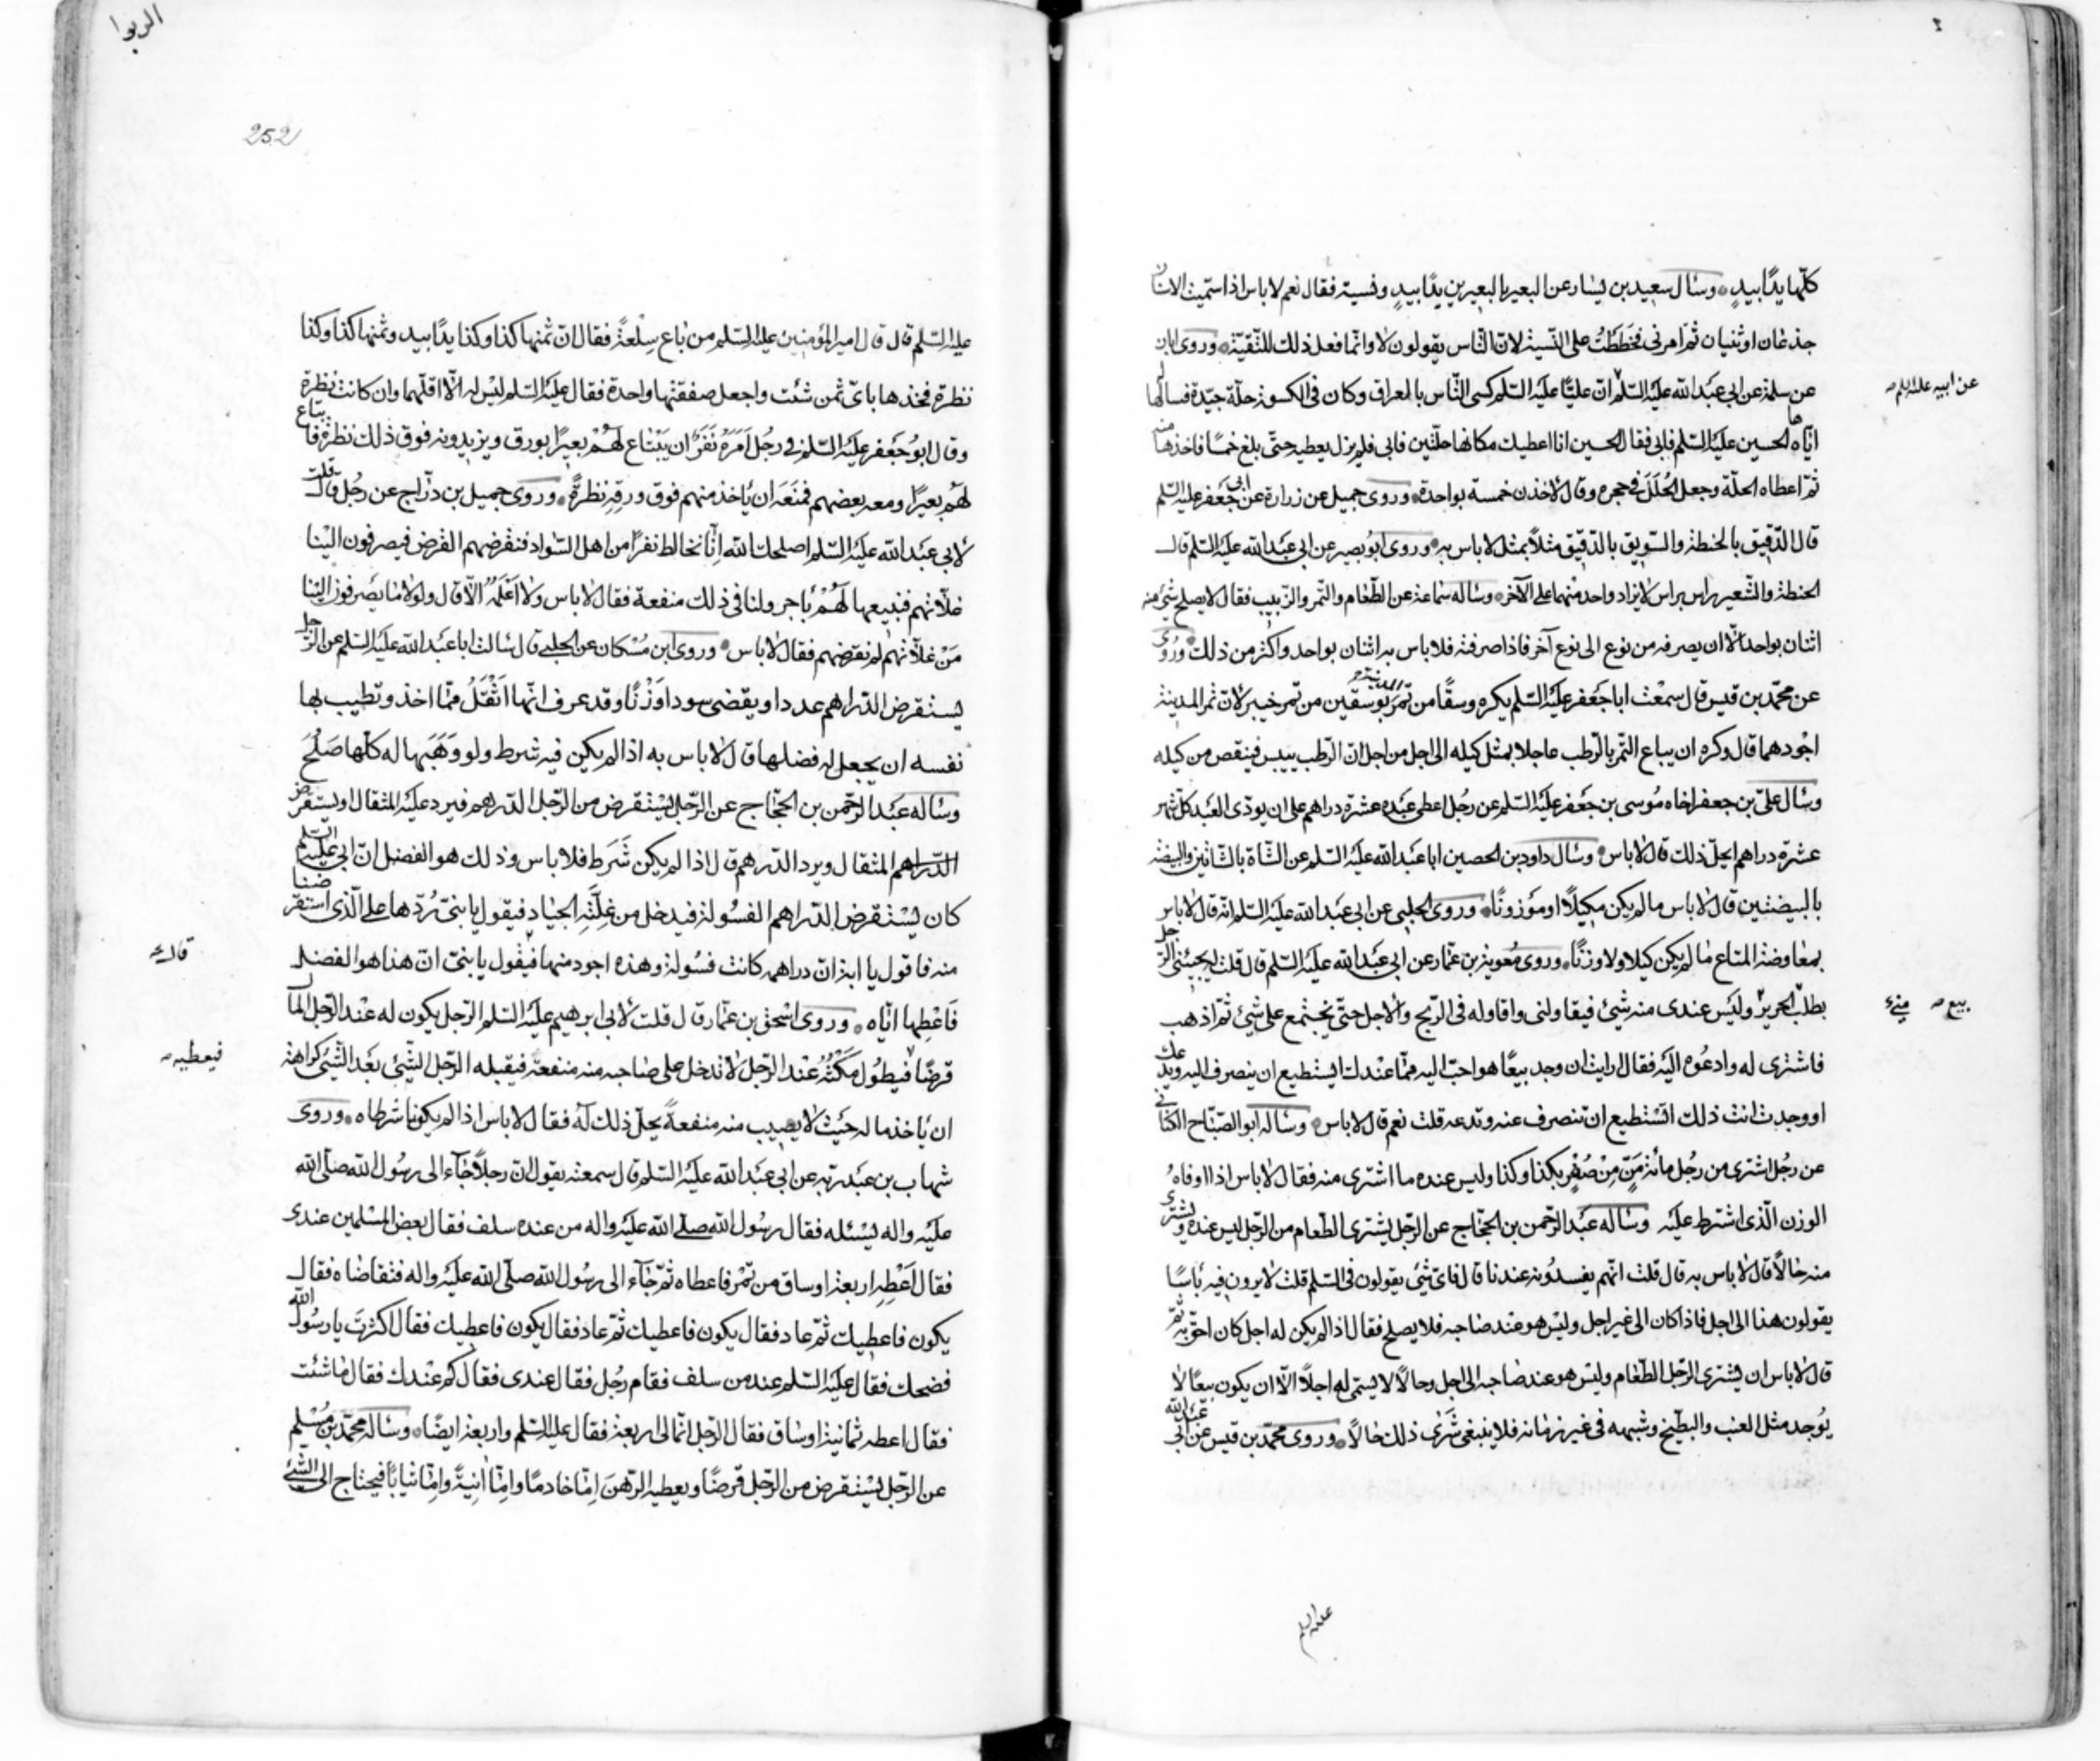 كلّها يدًا بيدٍ وسأل سعيد بن يسار عن البعير بالبعيرين يدًا بيدٍ ونسيئة فقال نعم لا باس اذا سمّيت الاسنان
جذعان او ثنيان ثمّ امرنى فخططت على النّسيئة لانّ النّاس يقولون لا وانّما فعل ذلك للتّقيّة وروى ابان
عن سلمة عن ابى عبد الله عليه السّلم انّ عليًّا عليه السّلم كسى النّاس بالعراق وكان فى الكسوة حلّة جيّدة فسألها
عن ابيه عليه السلم
ايّاه الحسين عليه السّلم فابى فقال الحسين انا اعطيك مكانها حلّتين فابى فلم يزل يعطيه حتّى بلغ خمسًا فاخذها منه
ثمّ اعطاه الحلّة وجعل الحُلَلَ فى حجره وقال لاخذن خمسة بواحدة وروى جميل عن زرارة عن ابى جعفر عليه السّلم
قال الدّقيق بالحنطة والسّويق بالدّقيق مثلاً بمثل لا باس به وروى ابو بصير عن ابى عبد الله عليه السّلم قال
الحنطة والشّعير راس براس لا يزاد واحد منهما على الآخر وسأله سماعة عن الطّعام والتّمر والزّبيب فقال لا يصلح شئ منه
اثنان بواحد الّا ان يصرفه من نوع الى نوع آخر فاذا صرفته فلا باس به اثنان بواحد واكثر من ذلك ورُوى
عن محمّد بن قيس قال سمعت ابا جعفر عليه السّلم يكره وسقًا من تمر المدينة بوسقين من تمر خيبر لانّ تمر المدينة
اجودهما قال وكره ان يباع التّمر بالرّطب عاجلا بمثل كيله الى اجل من اجل انّ الرّطب ييبس فينقص من كيله
وسأل علىّ بن جعفر اخاه موسى بن جعفر عليه السّلم عن رجُل اعطى عبده عشرة دراهم على ان يودى العبد كلّ شهر
عشرة دراهم ايحلّ ذلك قال لا باس وسأل داود بن الحصين ابا عبد الله عليه السّلم عن الشّاة بالشّاتين والبيضة
بالبيضتين قال لا باس ما لم يكن مكيلاً او موزونًا وروى الحلبى عن ابى عبد الله عليه السّلم انّه قال لا باس
بمعاوضة المتاع ما لم يكن كيلا ولا وزنًا وروى معوية بن عمّار عن ابى عبد الله عليه السّلم قال قلت له يجيئنى الرّجل
بطلب الحرير وليس عندى منه شئ فيقاولنى واقاوله فى الرّبح والاجل حتّى نجتمع على شئ ثمّ اذهب
بيع
فاشترى له وادعوه اليه فقال ارايت ان وجد بيعًا هو احبّ اليه ممّا عندك ايستطيع ان ينصرف اليه ويدعك
او وجدت انت ذلك اتستطيع ان تنصرف عنه وتدعه قلت نعم قال لا باس وسأله ابو الصّبّاح الكنانى
عن رجُل اشترى من رجُل مائة مَنٍّ مِنْ صُفْرٍ بكذا وكذا وليس عنده ما اشترى منه فقال لا باس اذا اوفاه
الوزن الّذى اشترط عليه وسأله عبد الرّحمن بن الحجّاج عن الرّجل يشترى الطّعام من الرّجل ليس عنده ويشترى
منه حالًا قال لا باس به قال قلت انّهم يفسدونه عندنا قال فاىّ شئ يقولون فى السّلم قلت لا يرون فيه باسًا
يقولون هذا الى اجل فاذا كان الى غير اجل وليس هو عند صاحبه فلا يصلح فقال اذا لم يكن له اجل كان احقّ به ثمّ
قال لا باس ان يشترى الرّجل الطّعام وليس هو عند صاحبه الى اجل وحالًا لا يسمّى له اجلًا الّا ان يكون بيعًا لا
يوجد مثل العنب والبطّيخ وشبهه فى غير زمانه فلا ينبغى شرى ذلك حالًا وروى محمّد بن قيس عن ابى عبد الله
عليه السلم
الربوا
252
عليه السّلم قال قال امير المؤمنين عليه السّلم من باع سلعةً فقال انّ ثمنها كذا وكذا يدًا بيد وثمنها كذا وكذا
نظرة فخذها باىّ ثمن شئت واجعل صفقتها واحدة فقال عليه السّلم ليس له الّا اقلّهما وان كانت نظرة
وقال ابو جعفر عليه السّلم فى رجُل اَمَرَهُ نَفَرٌ ان يَبْتاع لهُمْ بعيرًا بورق ويزيدونه فوق ذلك نظرة فابتاع
لهم بعيرًا ومعه بعضهم فمنعه ان ياخذ منهم فوق ورقه نظرةً وروى جميل بن درّاج عن رجُل قال قلت
لابى عبد الله عليه السّلم اصلحك الله انّا نخالط نفرًا من اهل السّواد فنقرضهم القرض فيصرفون الينا
غلّاتهم فنبيعها لهم باجر ولنا فى ذلك منفعة فقال لا باس ولا اعلمه الّا قال ولولا ما يصرفون الينا
مَنْ غلّاتهم لم نقرضهم فقال لا باس وروى ابن مسكان عن الحلبى قال سألت ابا عبد الله عليه السّلم عن الرّجل
يستقرض الدّراهم عددا ويقضى سودا وزْنًا وقد عرف انّها اثقلُ ممّا اخذ وتطيب بها
نفسه ان يجعل له فضلها قال لا باس به اذا لم يكن فيه شرط ولو وَهَبَها له كلّها صَلُحَ
وسأله عبد الرّحمن بن الحجّاج عن الرّجل يستقرض من الرّجل الدّرهم فيرد عليه المثقال او يستقرض
الدّراهم المثقال ويرد الدّرهم قال اذا لم يكن شَرَط فلا باس وذلك هو الفضل انّ ابى عليه السّلم
كان يستقرض الدّراهم الفسولة فيدخل من غلّته الجياد فيقول يا بنىّ رُدّها على الّذى استقرضنا
منه فاقول يا ابه انّ دراهمه كانت فسولة وهذه اجود منها فيقول يا بنىّ انّ هذا هو الفضل
قال
فاعطها ايّاه وروى اسحق بن عمّار قال قلت لابى ابرهيم عليه السّلم الرّجل يكون له عند الرّجل المال
قرضًا فيطُول مَكثُهُ عند الرّجل لا تدخل على صاحبه منه منفعة فيقبله الرّجل الشّئ بعد الشّئ كراهة
فيعطيه
ان ياخذ ماله حيث لا يصيب منه منفعةً يحلّ ذلك له فقال لا باس اذا لم يكونا شرطاه وروى
شهاب بن عبد ربّه عن ابى عبد الله عليه السّلم قال سمعته يقول انّ رجلًا جاء الى رسُول الله صلّى الله
عليه واله يسئله فقال رسُول الله صلّى الله عليه واله من عنده سلف فقال بعض المسلمين عندى
فقال اَعْطِهِ اربعة اوساق من تمْر فاعطاه ثمّ جاء الى رسُول الله صلّى الله عليه واله فتقاضاه فقال
يكون فاعطيك ثمّ عاد فقال يكون فاعطيك ثمّ عاد فقال يكون فاعطيك فقال اكثرت يا رسُول الله
فضحك فقال عليه السّلم عند من سلف فقام رجُل فقال عندى فقال كم عندك فقال ما شئت
فقال اعطه ثمانية اوساق فقال الرّجل انّما لى اربعة فقال عليه السّلم واربعة ايضًا وسأله محمّد بن مُسْلِم
عن الرّجل يستقرض من الرّجل قرضًا ويعطيه الرّهنَ اِمّا خادمًا وامّا انيةً وامّا ثيابًا فيحتاج الى الشّئ